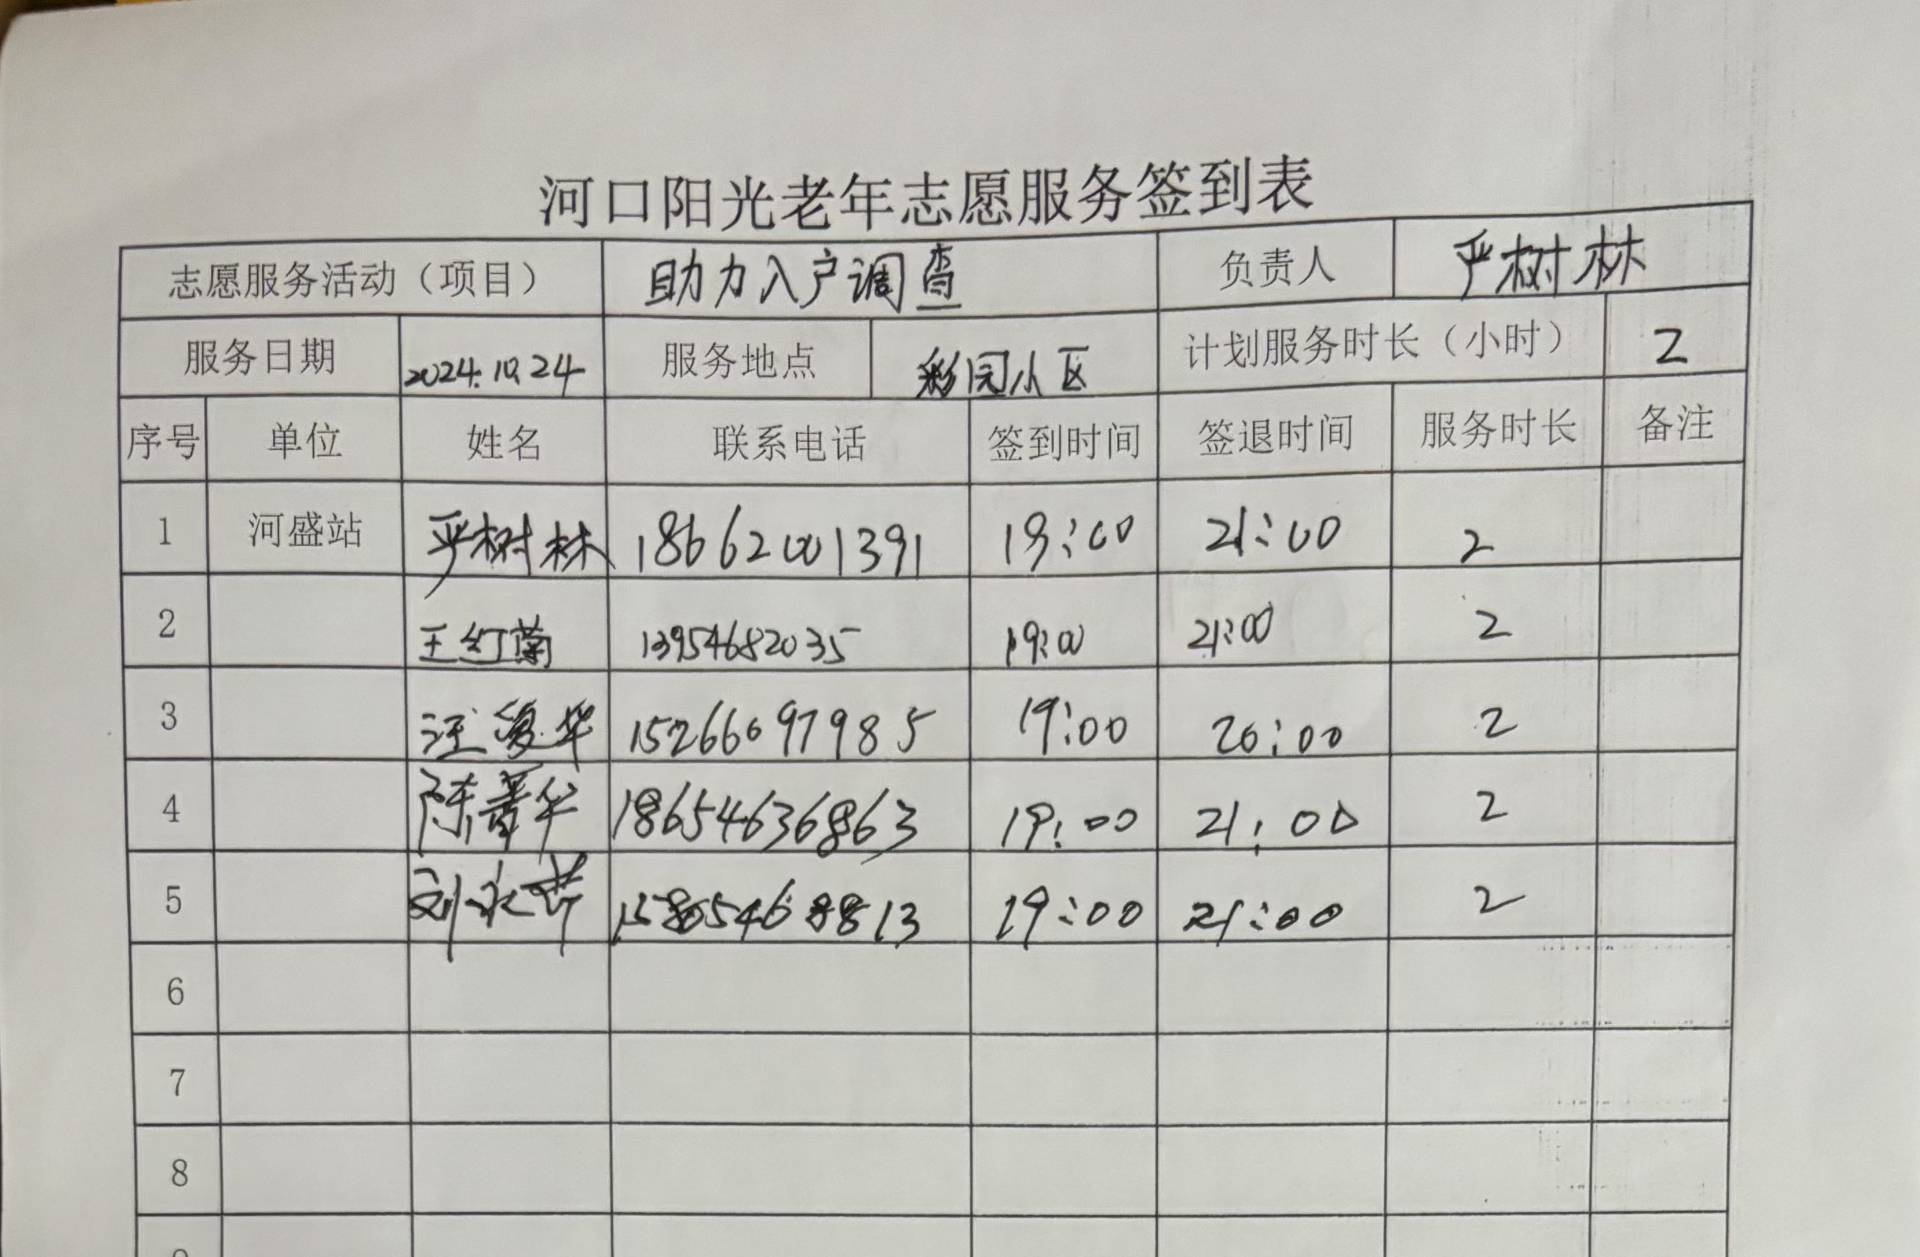 河口阳光老年志愿服务签到表
志愿服务活动（项目） 助力入户调查 负责人 严树林
服务日期 2024.10.24 服务地点 彩园小区 计划服务时长（小时） 2
序号 单位 姓名 联系电话 签到时间 签退时间 服务时长 备注
1 河盛站 严树林 18662001391 19:00 21:00 2
2 王红兰 13954682035 19:00 21:00 2
3 汪爱华 15266097985 19:00 20:00 2
4 陈菁华 18654636863 19:00 21:00 2
5 刘永芹 19:00 21:00 2
6
7
8